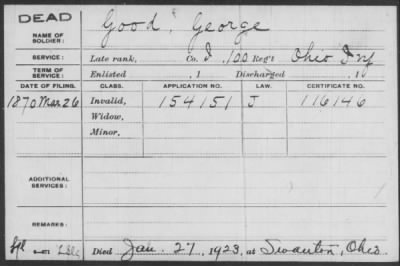 DEAD
NAME OF SOLDIER: Good, George
SERVICE: Late rank, Co. I, 100 Reg't Ohio Inf
TERM OF SERVICE: Enlisted , 1 Discharged , 1
DATE OF FILING. CLASS. APPLICATION NO. LAW. CERTIFICATE NO.
1870 Mar 26 Invalid, 154151 J 116146
Widow,
Minor,
ADDITIONAL SERVICES:
REMARKS:
Died Jan. 27, 1923, at Swanton, Ohio